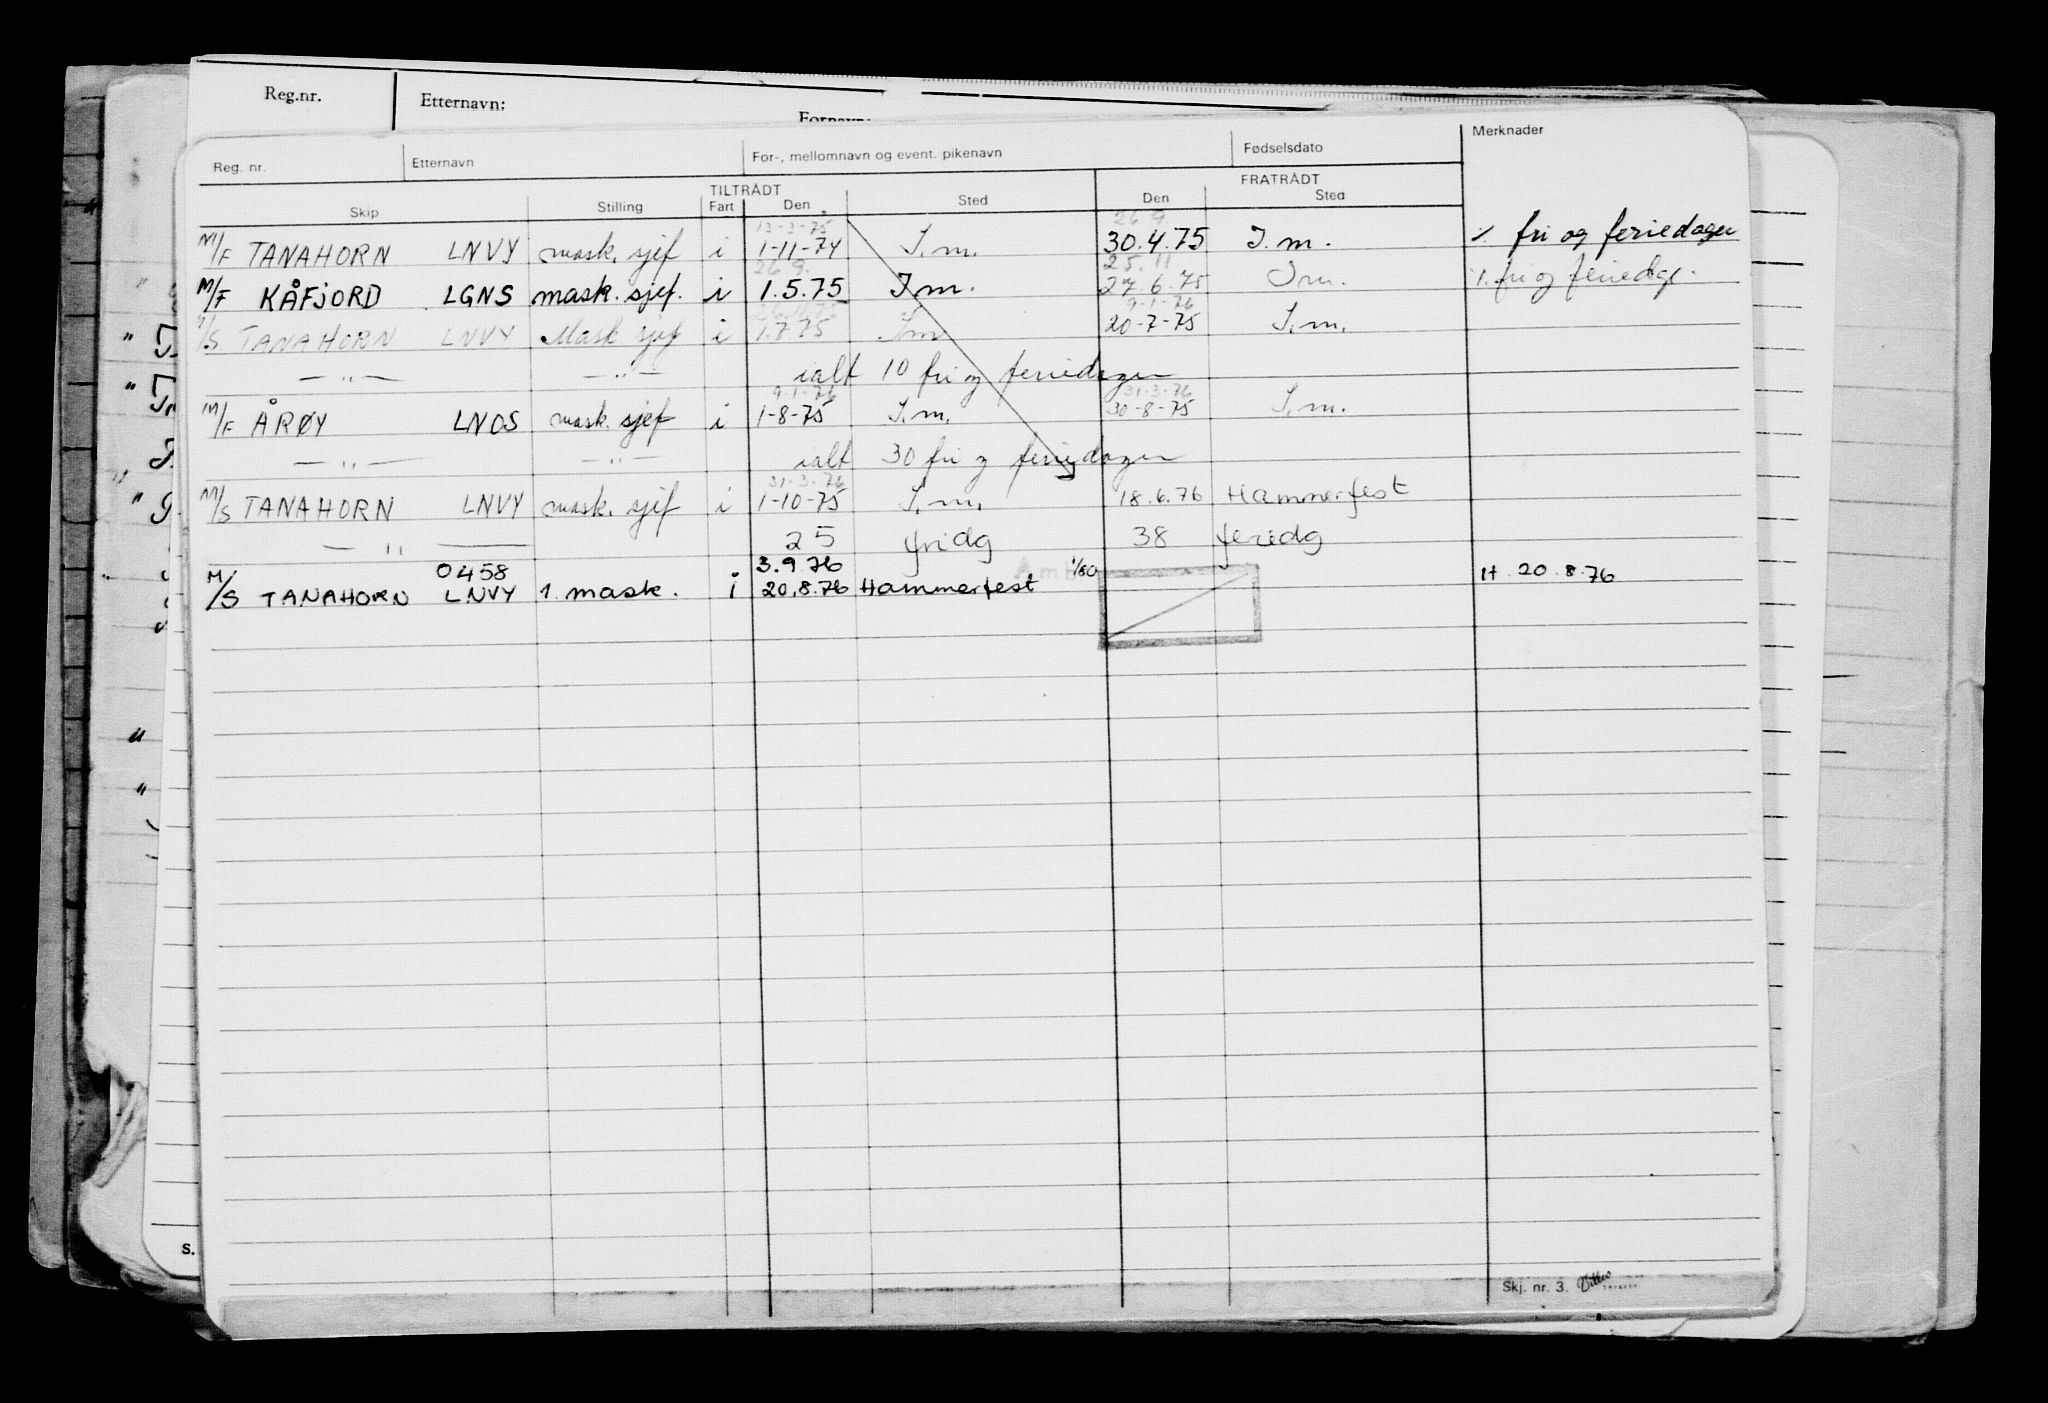 Reg.nr. Etternavn: Fornavn:
Reg. nr. Etternavn For-, mellomnavn og event. pikenavn Fødselsdato Merknader
TILTRÅDT FRATRÅDT
Skip Stilling Fart Den Sted Den Sted
13-3-75 26 9.
M/F TANAHORN LNVY mask. sjef i 1-11-74 I.m. 30.4.75 I.m. % fri og feriedager
26 9. 25.11
M/F KÅFJORD LGNS mask. sjef. i 1.5.75 I m. 27.6.75 I m. %. fri og feriedge.
9-1-76
M/S TANAHORN LNVY Mask sjef i 1.7.75 I m 20-7-75 I.m.
— " — — " — ialt 10 fri og feriedager
9-1-76 31-3-76
M/F ÅRØY LNOS mask. sjef i 1-8-75 I.m. 30-8-75 I.m.
— " — — " — ialt 30 fri og feriedager
31-3-76
M/S TANAHORN LNVY mask. sjef i 1-10-75 I.m. 18.6.76 Hammerfest
— " — 25 fridg 38 feriedg
0458 3.9.76 1/80
M/S TANAHORN LNVY 1. mask. i 20.8.76 Hammerfest H 20.8.76
Skj. nr. 3.
S.